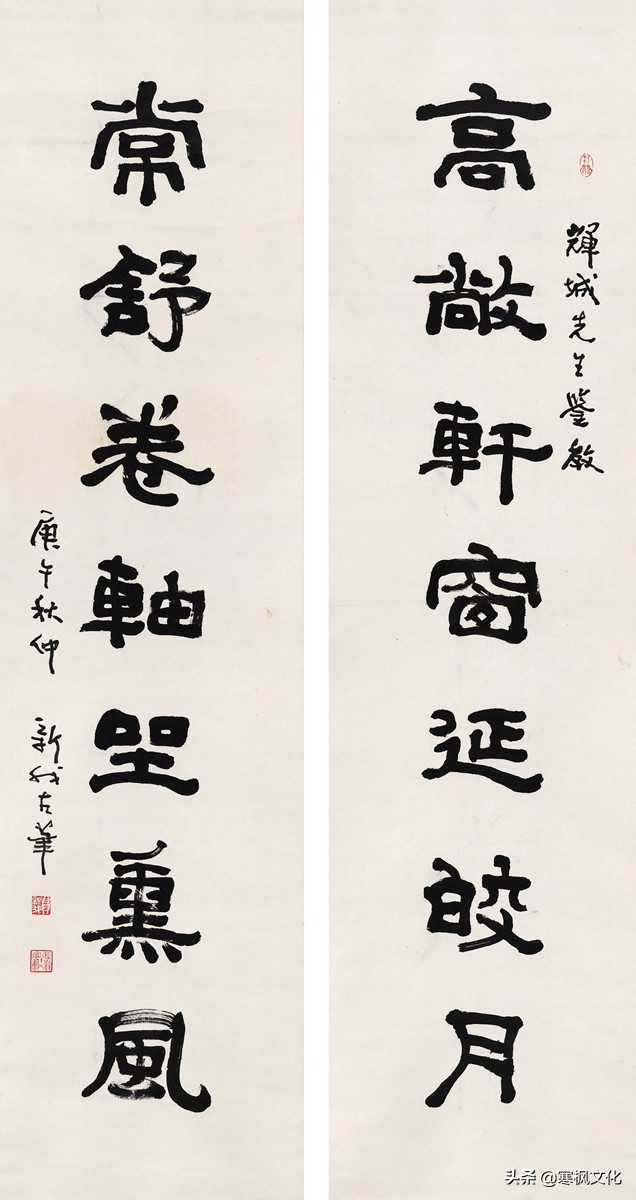 高敞軒窗延皎月
輝城先生鑒教
常舒卷軸坐薰風
庚午秋仲 新我左筆
头条 @寒枫文化